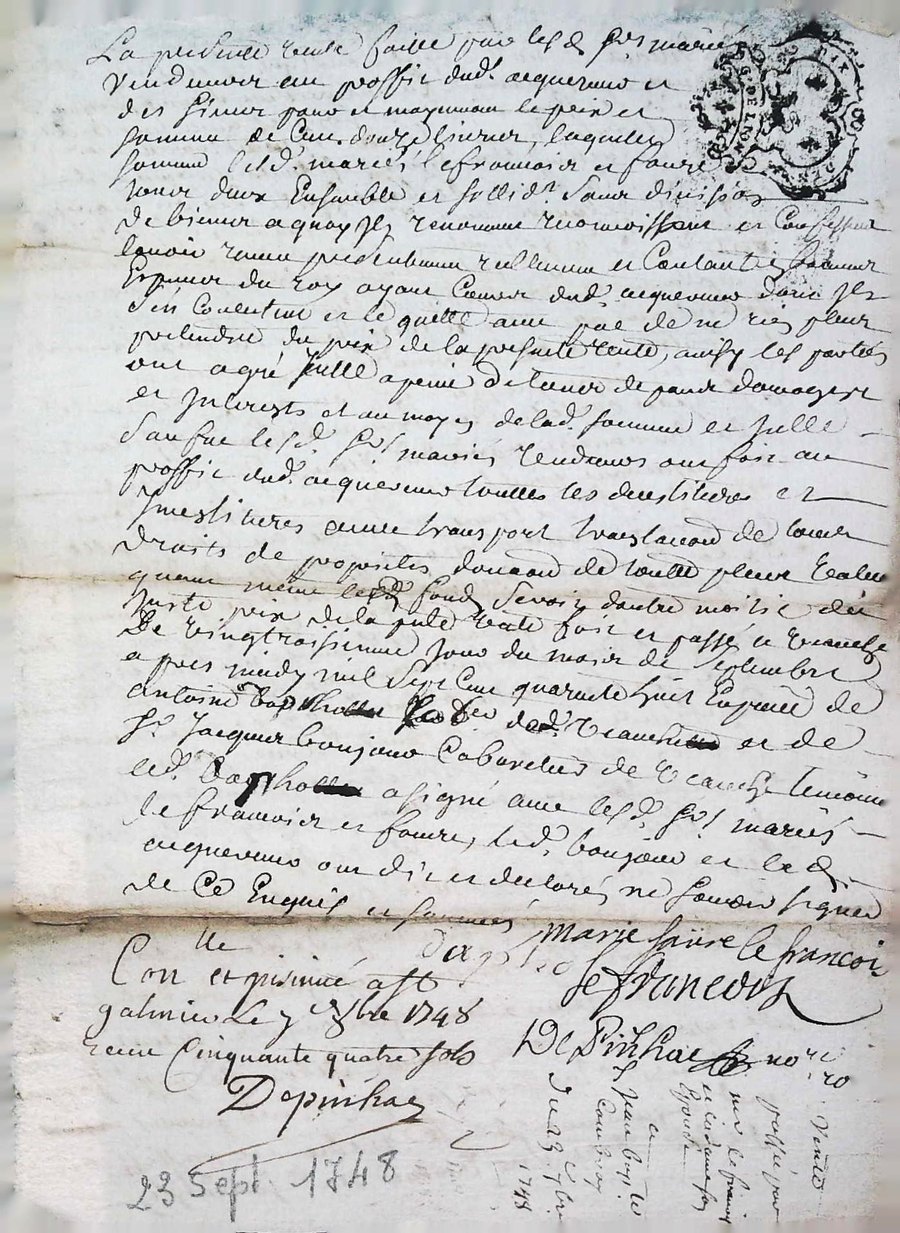 La presente vente faitte par lesd. srs mariés
vendeurs au proffit dud. acquereur et
des siens pour et moyennant le prix et
somme de Cent douze livres, laquelle
somme lesd. mariés lefrancois et faure
tous deux Ensemble et sollidt. sans division
de biens a quoy ils renoncent reconnoissent et Confessent
lavoir reçue presentement reellement et Contant en
Especes du roy ayant Cours dud. acquereur dont ils
s'en Contentent et le quitte avec pac de ne rien plus
pretendre du prix de la presente vente, ainsy les parties
ont agré a peine de tous depans domages
et interests et au moyen de lad. somme et
lesd. srs mariés vendeurs ont fait au
proffit dud. acquereur touttes les devestitures et
Investitures avec transport translation de tous
droits de proprietés donnant de toutte plus value
quand même led. fonds seroit doutre moitié du
juste prix de la pnte vente fait et passé a veauche
le vingtroisieme jour du mois de septembre
apres midy mil sept Cent quarante huit En pnce de
antoine dud. veauche et de
sr. Jacques bonjour Cabaretier de veauche temoins
led. a signé avec lesd. srs mariés
lefrancois et faure, led. bonjour et led.
acquereur ont dit et declarés ne scavoir signer
de Ce Enquis et sommés
marie faure lefrancois
lefrancois
Conlle et insinué a st
galmier Le 7 8bre 1748
receu Cinquante quatre sols
Depinhac
De Pinhac nore
ro
vente
passé par
mr lefrancois
Epouse
a
Jean
du 23 7bre
1748
23 Sept. 1748